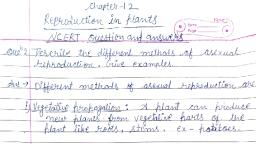 Chapter-12
Reproduction in plants
NCERT Question and answers
Que 2 Describe the different methods of asexual
reproduction. Give examples.
Ans → Different methods of asexual reproduction are
1) Vegetative propagation : A plant can produce
new plants from vegetative parts of the
plant like roots, stems. ex - potatoes.